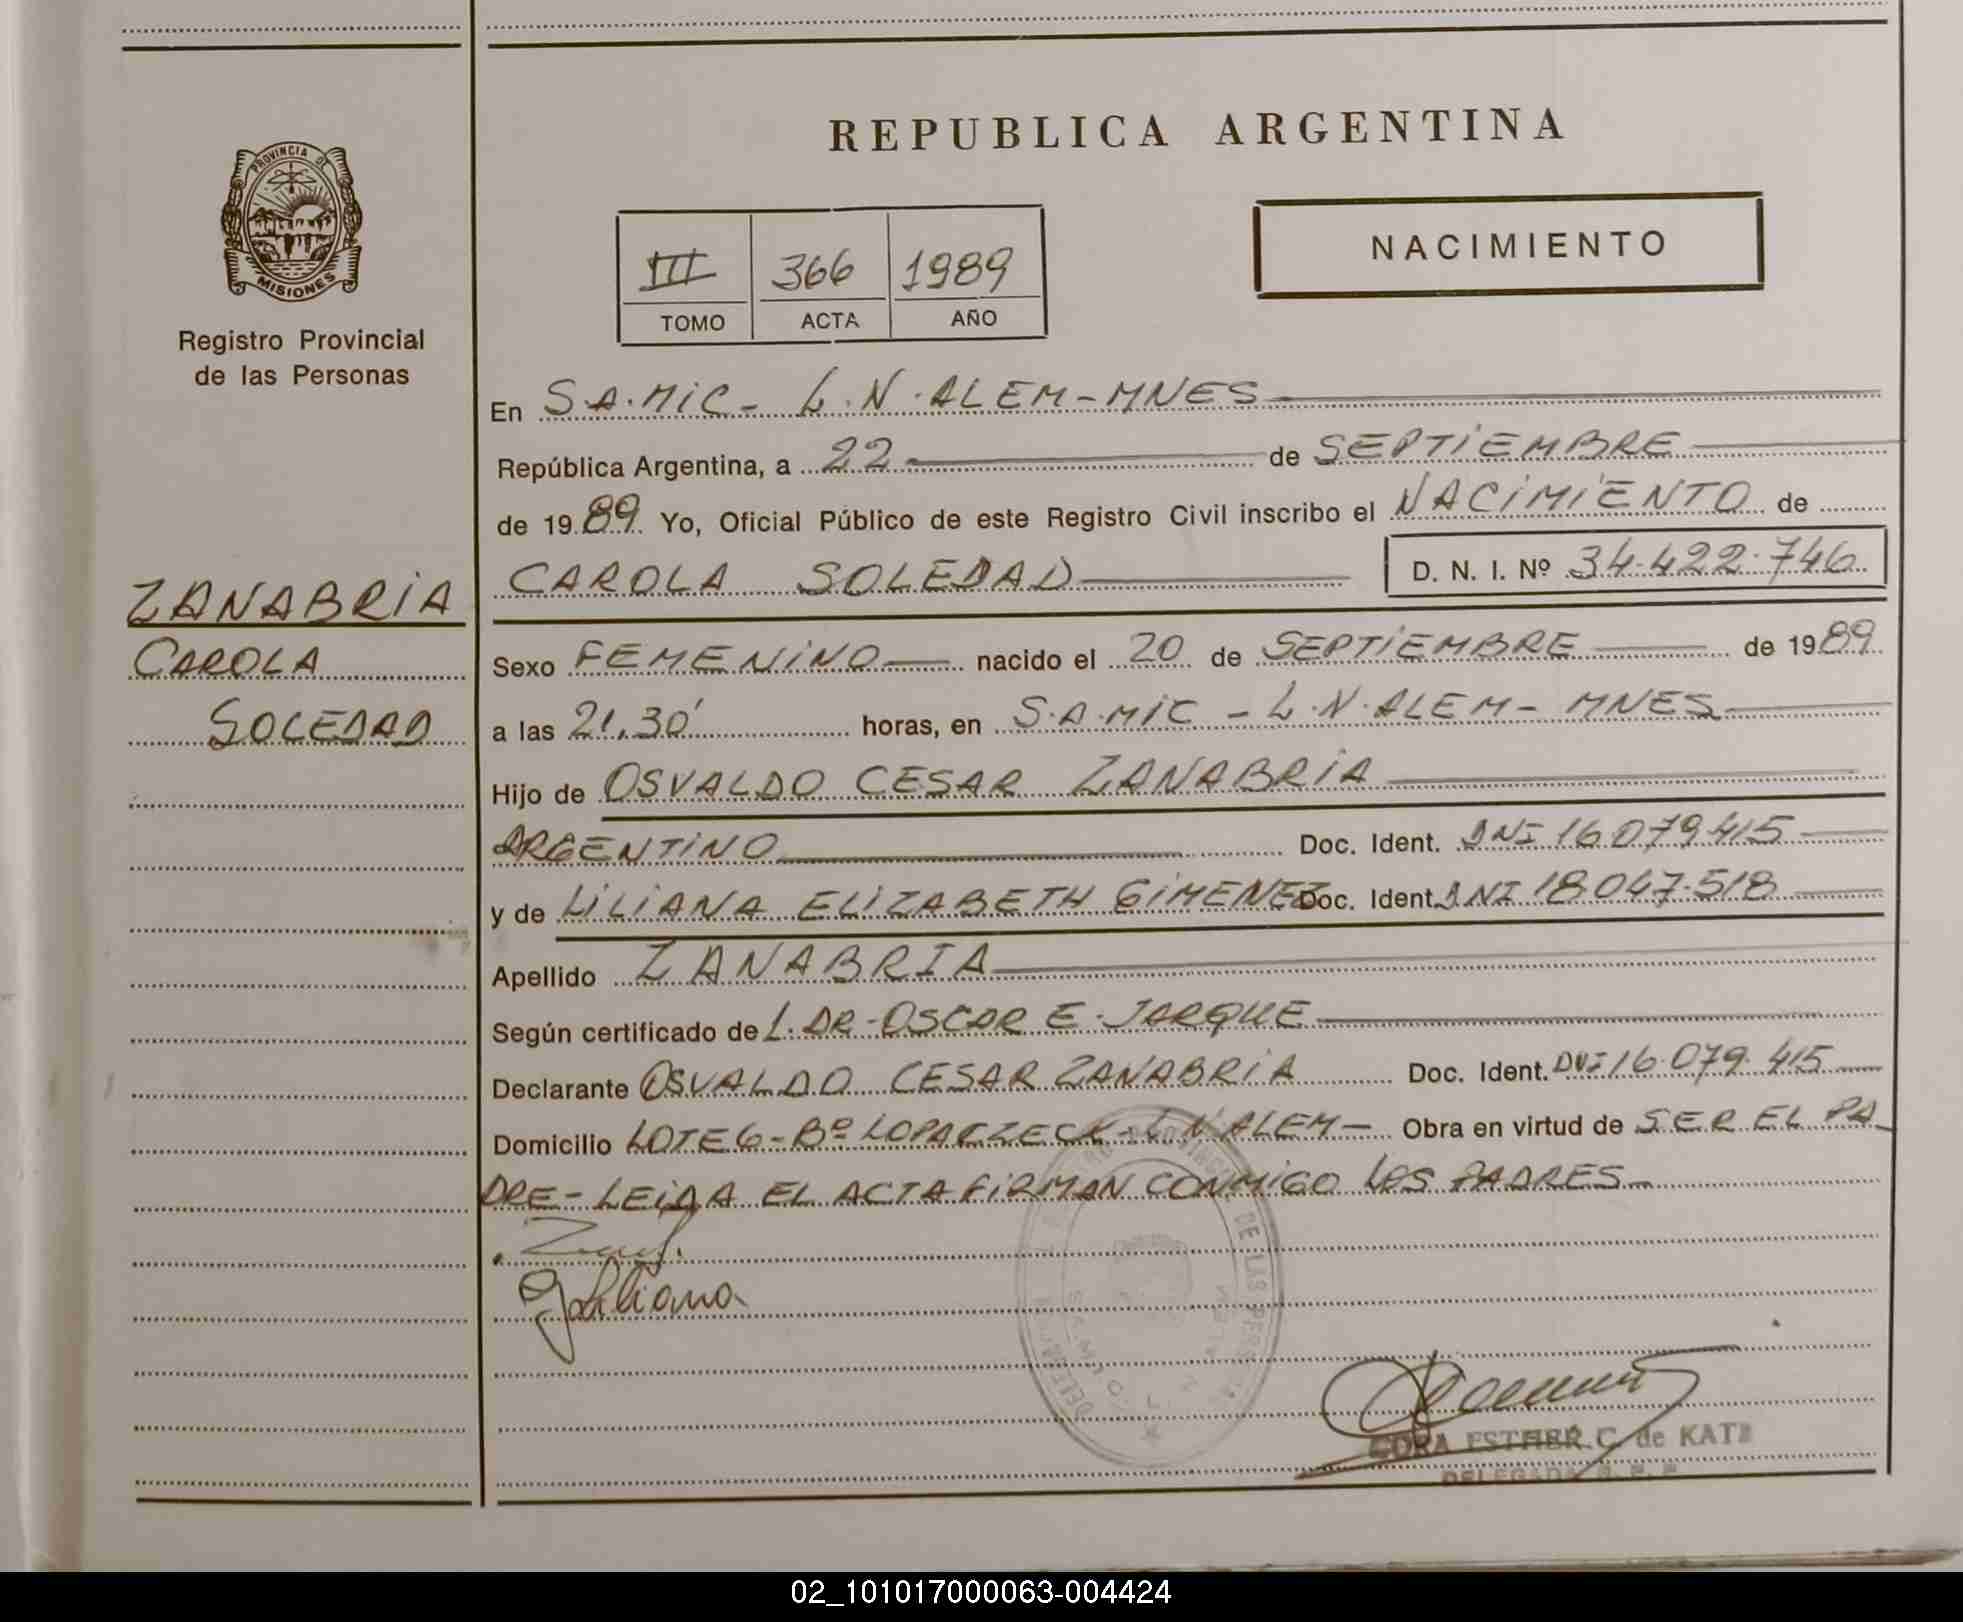 REPUBLICA ARGENTINA
PROVINCIA DE
MISIONES
Registro Provincial
de las Personas
III 366 1989
TOMO ACTA AÑO
NACIMIENTO
En S.A.MIC- L.N.ALEM-MNES
República Argentina, a 22 de SEPTIEMBRE
de 1989 Yo, Oficial Público de este Registro Civil inscribo el NACIMIENTO de
CAROLA SOLEDAD D. N. I. Nº 34.422.746
ZANABRIA
CAROLA
SOLEDAD
Sexo FEMENINO nacido el 20 de SEPTIEMBRE de 1989
a las 21,30' horas, en S.A.MIC - L.N.ALEM- MNES
Hijo de OSVALDO CESAR ZANABRIA
ARGENTINO Doc. Ident. DNI 16.079.415
y de LILIANA ELIZABETH GIMENEZ Doc. Ident. DNI 18.047.518
Apellido ZANABRIA
Según certificado de L. DR. OSCAR E. JARQUE
Declarante OSVALDO CESAR ZANABRIA Doc. Ident. DNI 16.079.415
Domicilio LOTE 6-Bº LOPACZECK-L.N.ALEM- Obra en virtud de SER EL PA_
DRE- LEIDA EL ACTA FIRMAN CONMIGO LOS PADRES
G Liliana
DE LAS PERSONAS
S.A.M.I.C. L. N. ALEM
CORA ESTHER C. de KATZ
DELEGADA R. P. P.
02_101017000063-004424